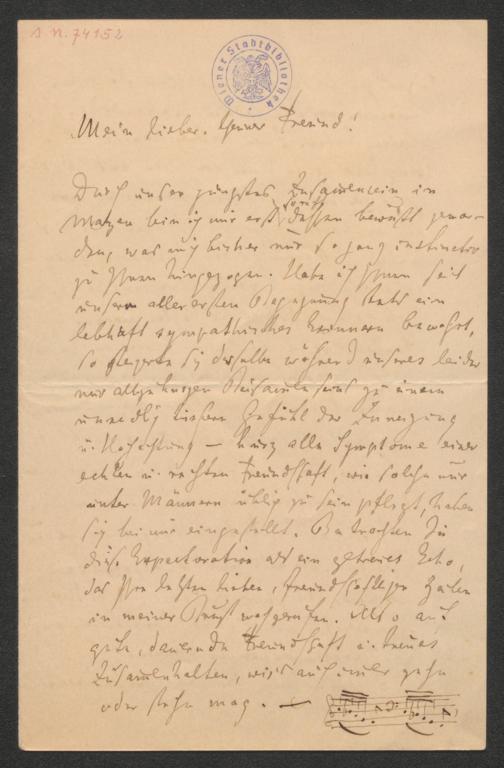 I. N. 74152
Wiener Stadtbibliothek
Mein lieber, theurer Freund!
Durch unser jüngstes Zusammensein in
Mayen bin ich mir erst dessen bewußt gewor-
den, was mich bisher nur so ganz instinctiv
zu Ihnen hingezogen. Habe ich Ihnen seit
unserm allerersten Begegnung stets ein
lebhaft sympathisches Erinnern bewahrt,
so steigerte sich dasselbe während unseres leider
nur allzukurzen Beisammenseins zu einem
unendlich tiefern Gefühl der Zuneigung
u. Hochachtung — kurz alle Symptome einer
echten u. rechten Freundschaft, wie solche nur
unter Männern üblich zu sein pflegt, haben
sich bei mir eingestellt. Betrachten Sie
diese Expectoration als ein getreues Echo,
das Ihre letzten lieben, freundschaftlichen Zeilen
in meiner Brust wachgerufen. Also auf
gute, dauernde Freundschaft u. treues
Zusammenhalten, wie's auch immer gehn
oder stehn mag. —